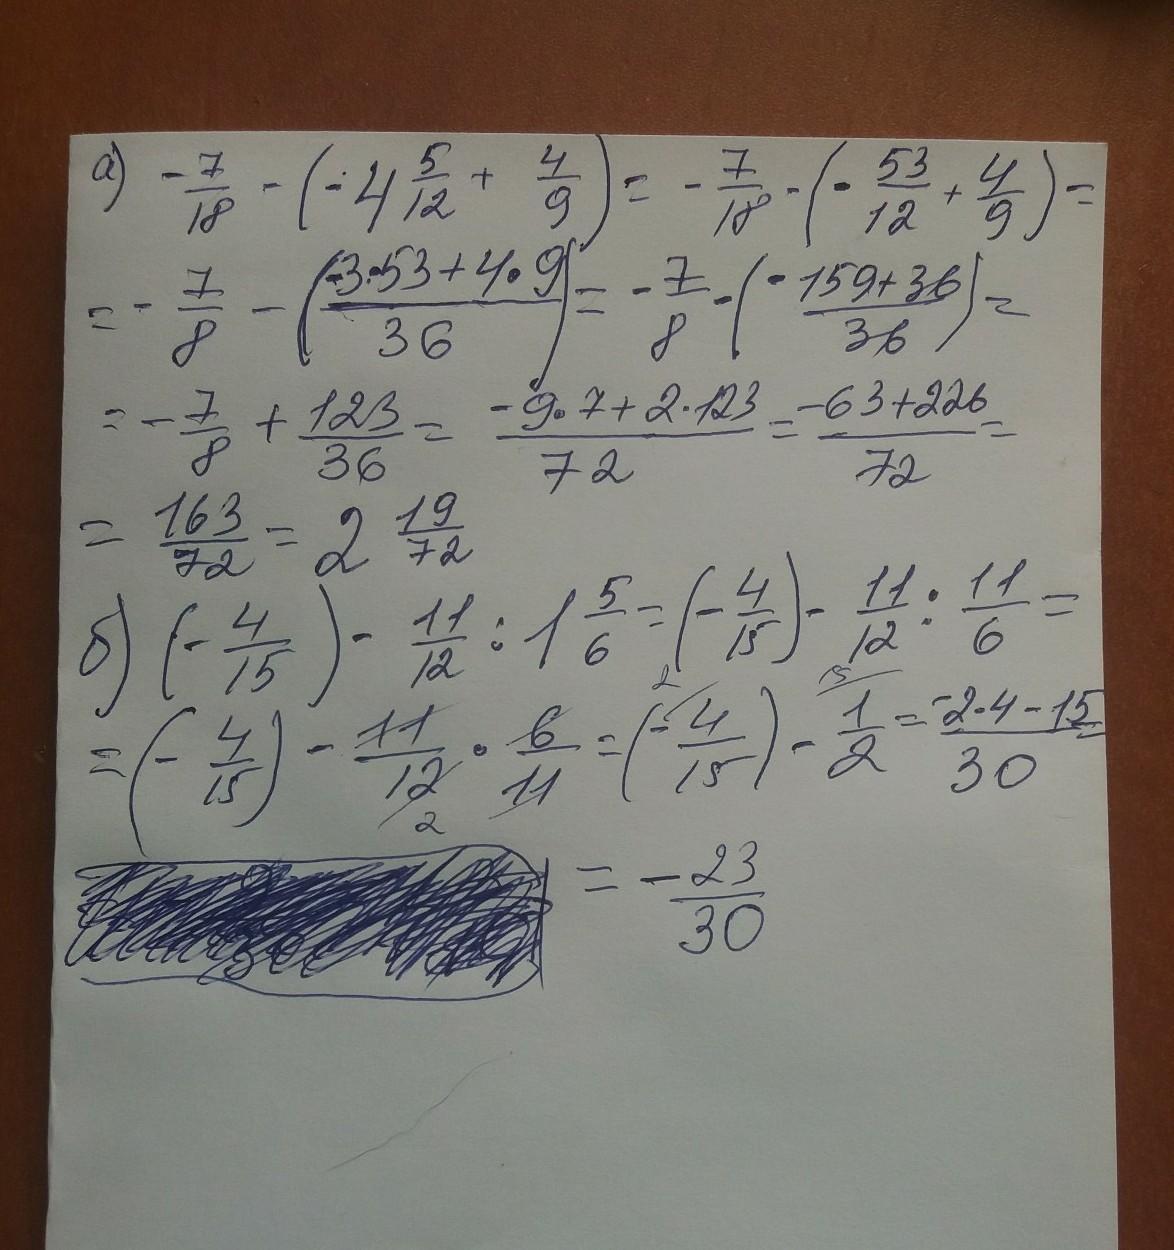 а) -7/18 - (-4 5/12 + 4/9) = -7/18 - (-53/12 + 4/9) =
= -7/8 - (-3·53+4·9/36) = -7/8 - (-159+36/36) =
= -7/8 + 123/36 = -9·7+2·123/72 = -63+226/72 =
= 163/72 = 2 19/72
б) (-4/15) - 11/12 : 1 5/6 = (-4/15) - 11/12 : 11/6 =
= (-4/15) - 11/12 · 6/11 = (-4/15) - 1/2 = -2·4-15/30
= -23/30